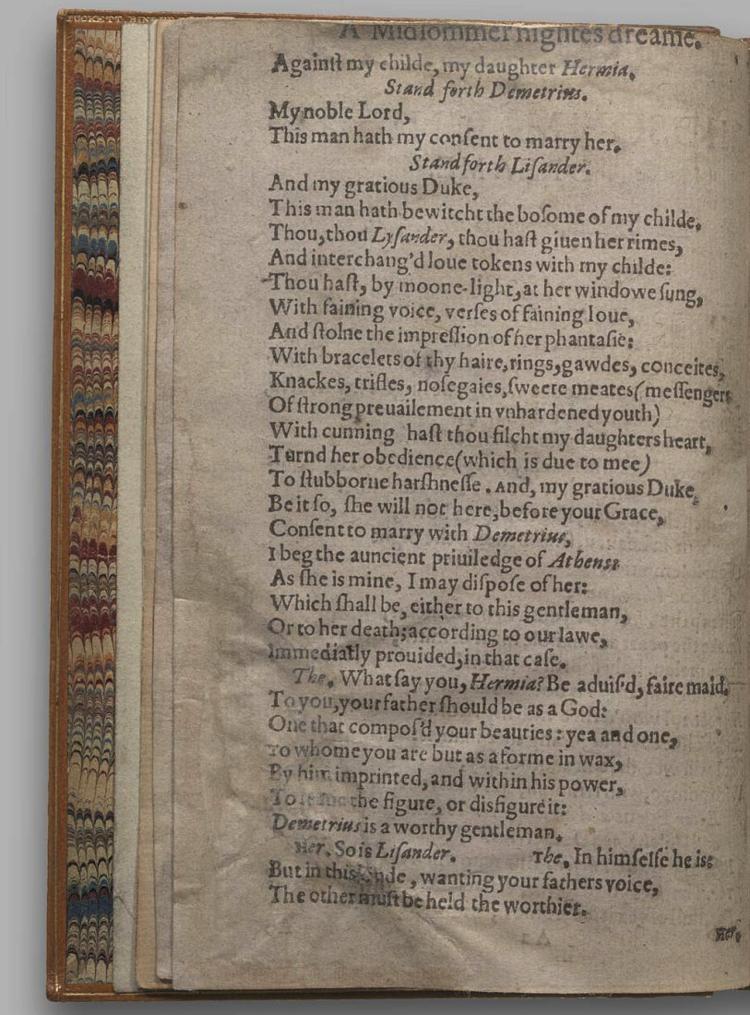 TUCKETT. BIN
A Midsommer nightes dreame.
Againſt my childe, my daughter Hermia.
Stand forth Demetrius.
My noble Lord,
This man hath my conſent to marry her.
Stand forth Liſander.
And my gratious Duke,
This man hath bewitcht the boſome of my childe.
Thou, thou Lyſander, thou haſt giuen her rimes,
And interchang'd loue tokens with my childe:
Thou haſt, by moone-light, at her windowe ſung,
With faining voice, verſes of faining loue,
And ſtolne the impreſſion of her phantaſie:
With bracelets of thy haire, rings, gawdes, conceites,
Knackes, trifles, noſegaies, ſweete meates (meſſengers
Of ſtrong preuailement in vnhardened youth)
With cunning haſt thou filcht my daughters heart,
Turnd her obedience (which is due to mee)
To ſtubborne harſhneſſe. And, my gratious Duke,
Be it ſo, ſhe will not here, before your Grace,
Conſent to marry with Demetrius,
I beg the auncient priuiledge of Athens:
As ſhe is mine, I may diſpoſe of her:
Which ſhall be, either to this gentleman,
Or to her death; according to our lawe,
Immediatly prouided, in that caſe.
The. What ſay you, Hermia? Be aduiſ'd, faire maid.
To you, your father ſhould be as a God:
One that compoſ'd your beauties: yea and one,
To whome you are but as a forme in wax,
By him imprinted, and within his power,
To the figure, or disfigure it:
Demetrius is a worthy gentleman.
Her. So is Liſander. The. In himſelfe he is:
But in this kinde, wanting your fathers voice,
The other muſt be held the worthier.
Her.